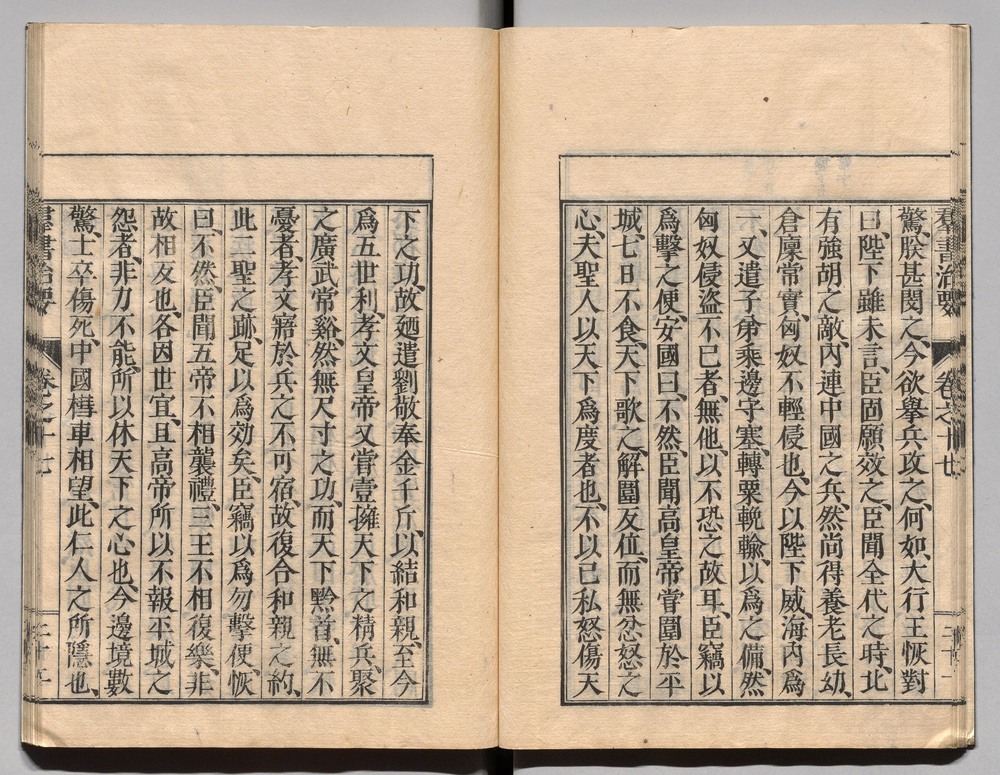 羣書治要 卷之十七
驚、朕甚閔之、今欲擧兵攻之、何如、大行王恢對
曰、陛下雖未言、臣固願效之、臣聞全代之時、北
有強胡之敵、內連中國之兵、然尚得養老長幼、
倉廩常實、匈奴不輕侵也、今以陛下威、海內爲
一、又遣子弟乘邊守塞、轉粟輓輸、以爲之備、然
匈奴侵盜不已者、無他、以不恐之故耳、臣竊以
爲擊之便、安國曰、不然、臣聞高皇帝嘗圍於平
城、七日不食、天下歌之、解圍反位、而無忿怒之
心、夫聖人以天下爲度者也、不以己私怒傷天
下之功、故廼遣劉敬奉金千斤、以結和親、至今
爲五世利、孝文皇帝又嘗壹擁天下之精兵、聚
之廣武常谿、然無尺寸之功、而天下黔首、無不
憂者、孝文寤於兵之不可宿、故復合和親之約、
此二聖之跡、足以爲効矣、臣竊以爲勿擊便、恢
曰、不然、臣聞五帝不相襲禮、三王不相復樂、非
故相反也、各因世宜、且高帝所以不報平城之
怨者、非力不能、所以休天下之心也、今邊境數
驚、士卒傷死、中國槥車相望、此仁人之所隱也、
羣書治要 卷之十七